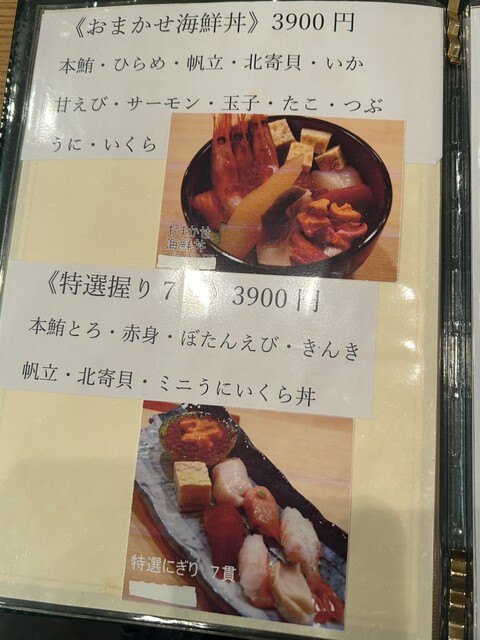 《おまかせ海鮮丼》3900円
本鮪・ひらめ・帆立・北寄貝・いか
甘えび・サーモン・玉子・たこ・つぶ
うに・いくら
おまかせ
海鮮丼
《特選握り7 3900円
本鮪とろ・赤身・ぼたんえび・きんき
帆立・北寄貝・ミニうにいくら丼
特選にぎり 7貫